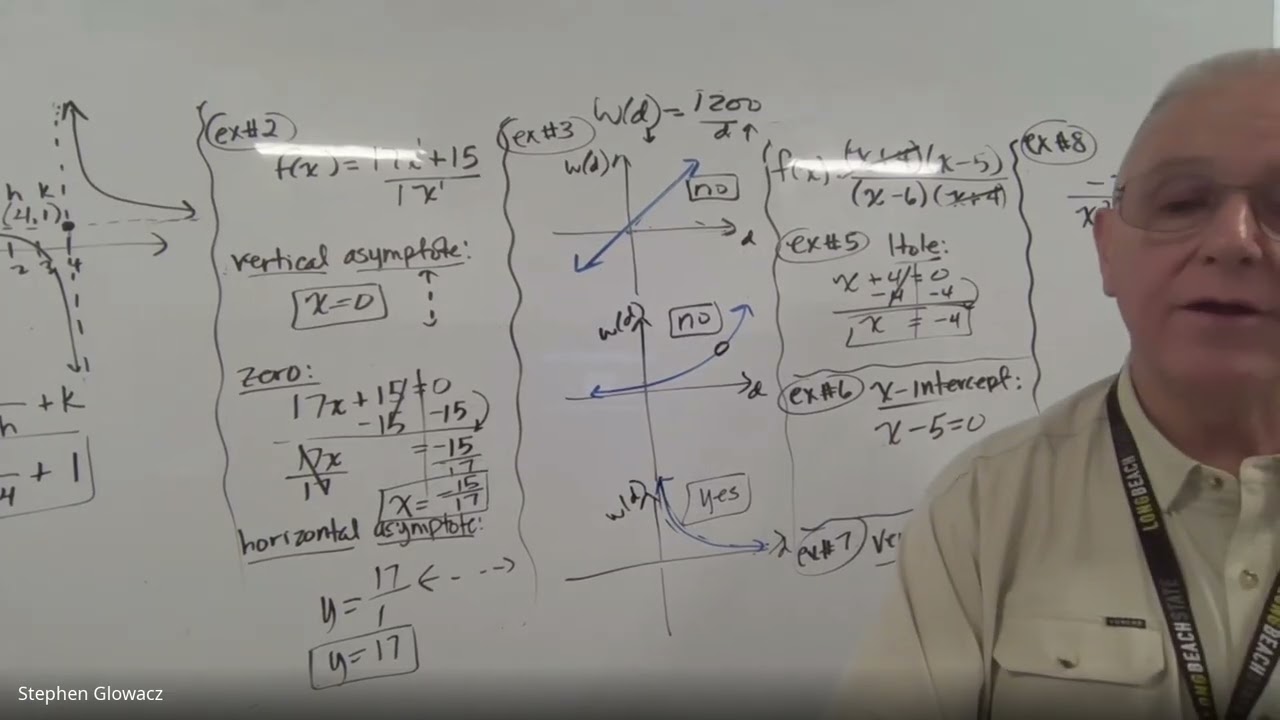 h k
(4,1)
1 2 3 4
+ K
h
4 + 1
ex#2
f(x) = 17x¹+15
1x¹
vertical asymptote:
x=0
zero:
17x+15=0
-15 -15
17x = -15
17 17
x = -15
17
horizontal asymptote:
y = 17
1
y=17
ex#3
W(d) = 1200
d
w(d)
no
d
w(d)
no
d
w(d)
yes
f(x) = (x+4)(x-5)
(x-6)(x+4)
ex#5 Hole:
x+4=0
-4 -4
x = -4
ex#6 x-intercept:
x-5=0
ex#7 Ver
ex#8
LONGBEACH
LONGBEACHSTATE
BEACH
Stephen Glowacz